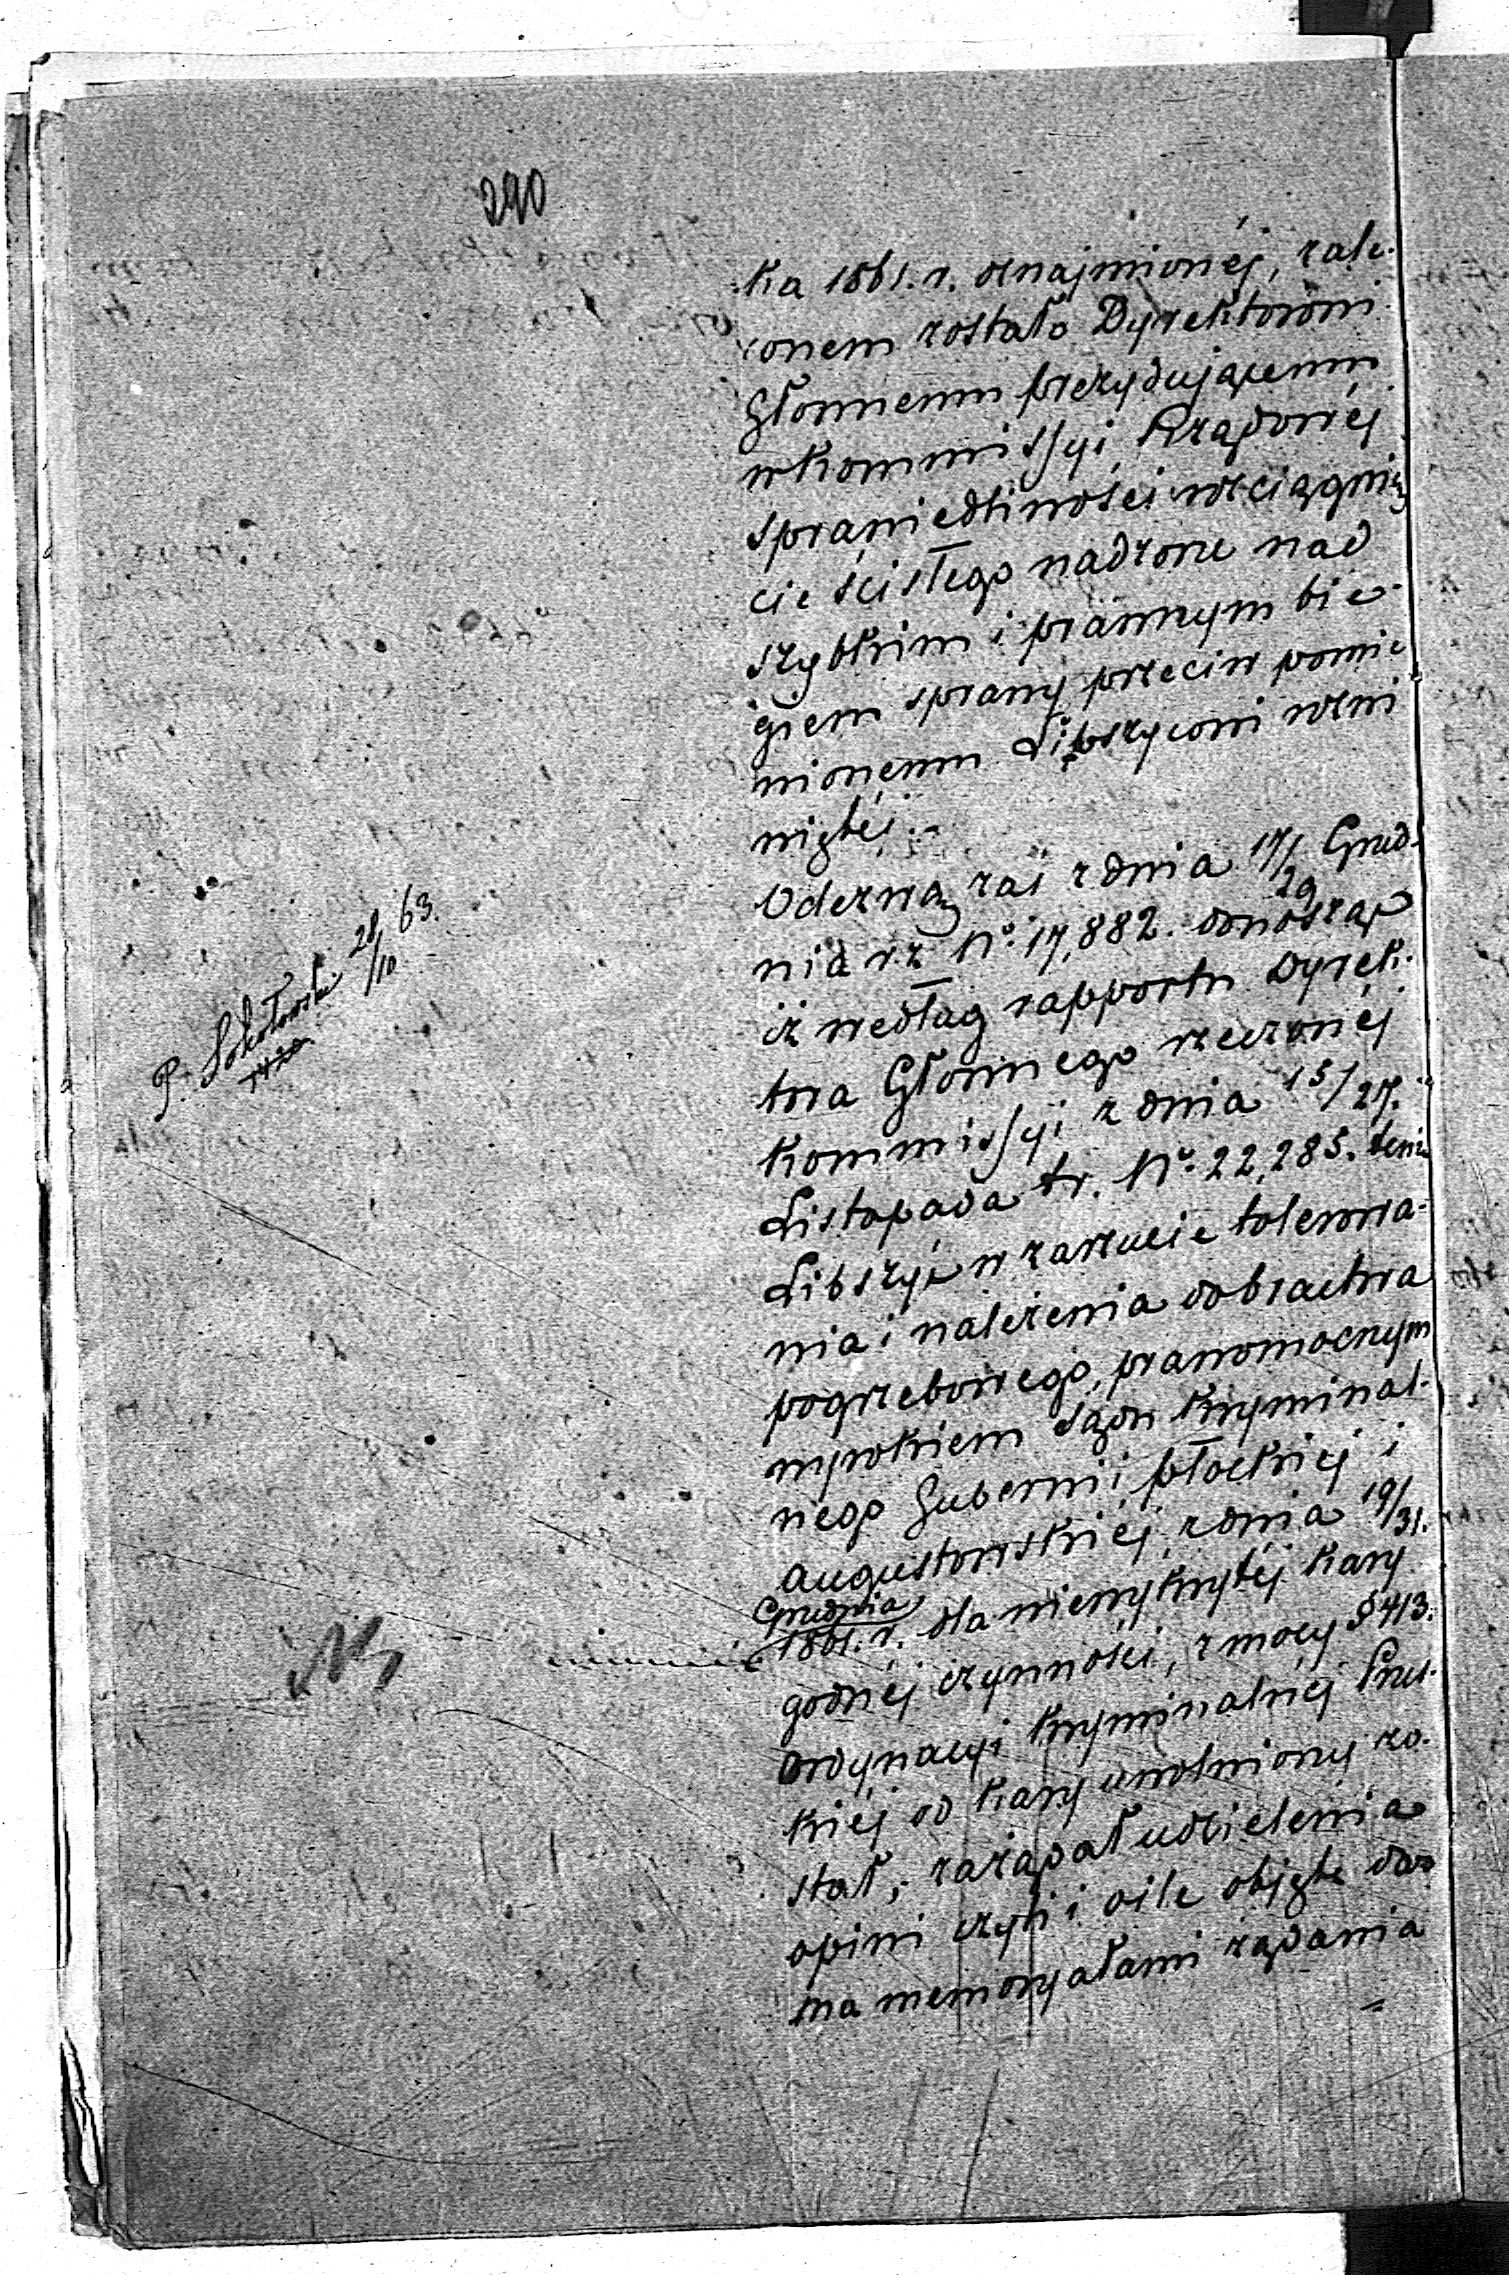 290
ka 1861. r. oznajmionéj, zale-
conem zostało Dyrektorowi
Głównemu prezydującemu
w Kommissyi Rządowéj
Sprawiedliwości rozciągnię
cie ścisłego nadzoru nad
szybkim i prawnym bie-
giem sprawy przeciw pomie
nionemu Libszycowi wszczi
niętéj.-
Odezwą zaś z dnia 17/29 Grud-
nia r.z. No. 17,882. donosząc
iż według rapportu Dyrek-
tora Głównego rzeczonéj
Kommissyi z dnia 15/27.
Listopada t.r. No. 22,285. tenże
Libszyc w zarzucie tolerowa-
nia i należenia do bractwa
pogrzebowego, prawomocnym
wyrokiem Sądu Kryminal-
nego Gubernii płockiej i
Augustowskiej, z dnia 19/31.
Grudnia
1861. r. dla niewykrytéj kary
godnéj czynności, z mocy § 413.
Ordynacyi Kryminalnéj Prus-
kiéj od kary uwolniony zo-
stał; zażądał udzielenia
opinii czyli i o ile objęte dwo
ma memoryałami żądania
P. Sokołowski 28/10 63.